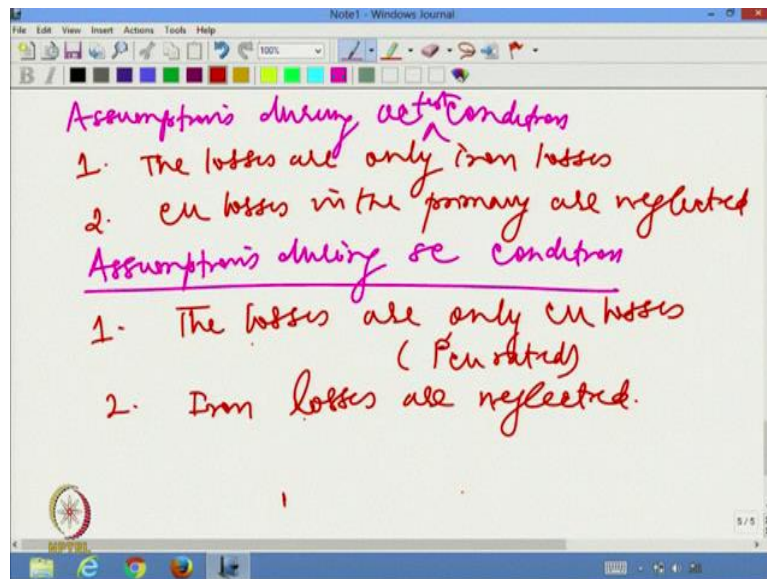 Note1 - Windows Journal
File Edit View Insert Actions Tools Help
100%
B I
Assumptions during oc test condition
1. The losses are only iron losses
2. cu losses in the primary are neglected
Assumptions during sc condition
1. The losses are only cu losses
(Pcu rated)
2. Iron losses are neglected.
NPTEL
5 / 5